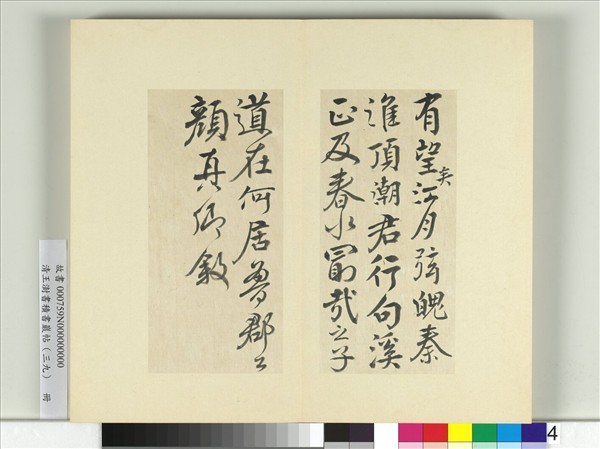 有望矣江月弦魄秦
淮頂潮君行句溪
正及春水勗哉之子
道在何居魯郡公
顏真卿敘
故書 000759N000000000
清王澍書積書巖帖（三九） 冊
4